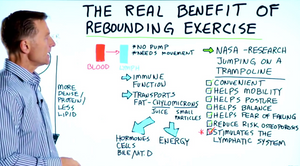 THE REAL BENEFIT OF
REBOUNDING EXERCISE
• NO PUMP
• NEEDS MOVEMENT
BLOOD
LYMPH
→ IMMUNE
FUNCTION
→ TRANSPORTS
FAT - CHYLOMICRONS
JUICE SMALL
PARTICLES
HORMONES
CELLS
ENERGY
MORE
DENSE/
PROTEIN/
LESS
LIPID
NASA - RESEARCH
JUMPING ON A
TRAMPOLINE
CONVENIENT
HELPS MOBILITY
HELPS POSTURE
HELPS BALANCE
HELPS FEAR OF FALLING
REDUCE RISK OSTEOPOROSIS
* STIMULATES THE
LYMPHATIC SYSTEM